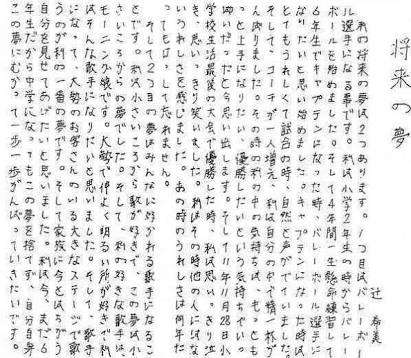 将来の夢
辻 希美
私の将来の夢は２つあります。１つ目はバレーボー
ル選手になる事です。私は小学２年生の時からバレー
ボールを始めました。そして４年間一生懸命練習して
６年生でキャプテンになった時、バレーボール選手に
なりたいと思い始めました。キャプテンになった時は
とてもうれしくて試合の時、自然と声がでていました。
そして、コーチが一人増え、私は自分の中で精一杯が
んばりました。その時の私の中の気持ちは、もっとも
っと上手になりたい、優勝したいという気持ちでいっ
ぱいだったと今思い出します。そして11年11月28日小
学校生活最後の大会で優勝した時、私は思いっきり泣
き、思いっきり笑いました。私はその時他の人にはな
いうれしさを感じました。あの時のうれしさは何年た
ってもぱっして忘れません。
そして２つ目の夢はみんなに好かれる歌手になるこ
とです。私は小さいころから歌が好きで、この夢は小
さいころからの夢でした。そして、私の好きな歌手は、
モーニング娘です。大勢で仲よく明るい所が好きで私
はそんな歌手になりたいと思いました。そして、歌手
になって、大勢のお客さんのいる大きなステージで歌
うのが私の一番の夢です。そして家族に今とはちがう
自分を見せてあげたいと思いました。私は今、まだ６
年生だから中学になってもこの夢を捨てず、自分自身
この夢にむかって一歩一歩がんばっていきたいです。